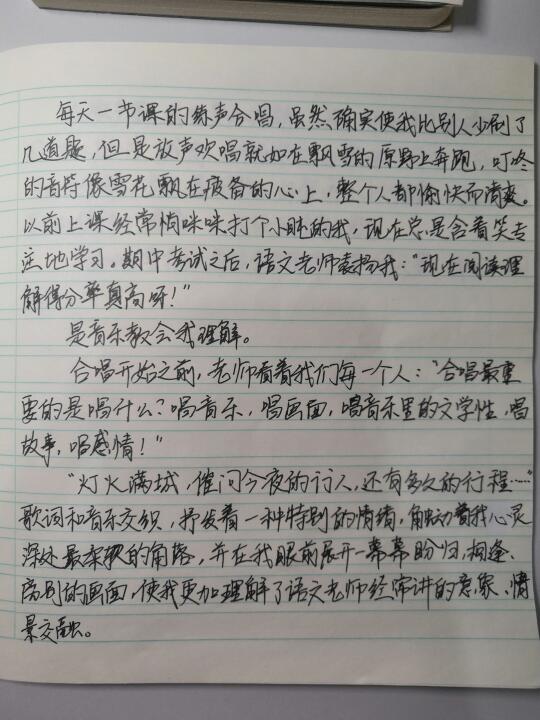 每天一节课的练声合唱，虽然确实使我比别人少刷了
几道题，但是放声欢唱就如在飘雪的原野上奔跑，叮咚
的音符像雪花飘在疲备的心上，整个人都愉快而清爽。
以前上课经常悄咪咪打个小盹的我，现在总是含着笑专
注地学习。期中考试之后，语文老师表扬我：“现在阅读理
解得分率真高呀！”
是音乐教会我理解。
合唱开始之前，老师看着我们每一个人：“合唱最重
要的是唱什么？唱音乐，唱画面，唱音乐里的文学性，唱
故事，唱感情！”
“灯火满城，催问今夜的行人，还有多久的行程……”
歌词和音乐交织，抒发着一种特别的情绪，触动着我心灵
深处最柔软的角落，并在我眼前展开一幕幕盼归、相逢、
离别的画面，使我更加理解了语文老师经常讲的意象、情
景交融。